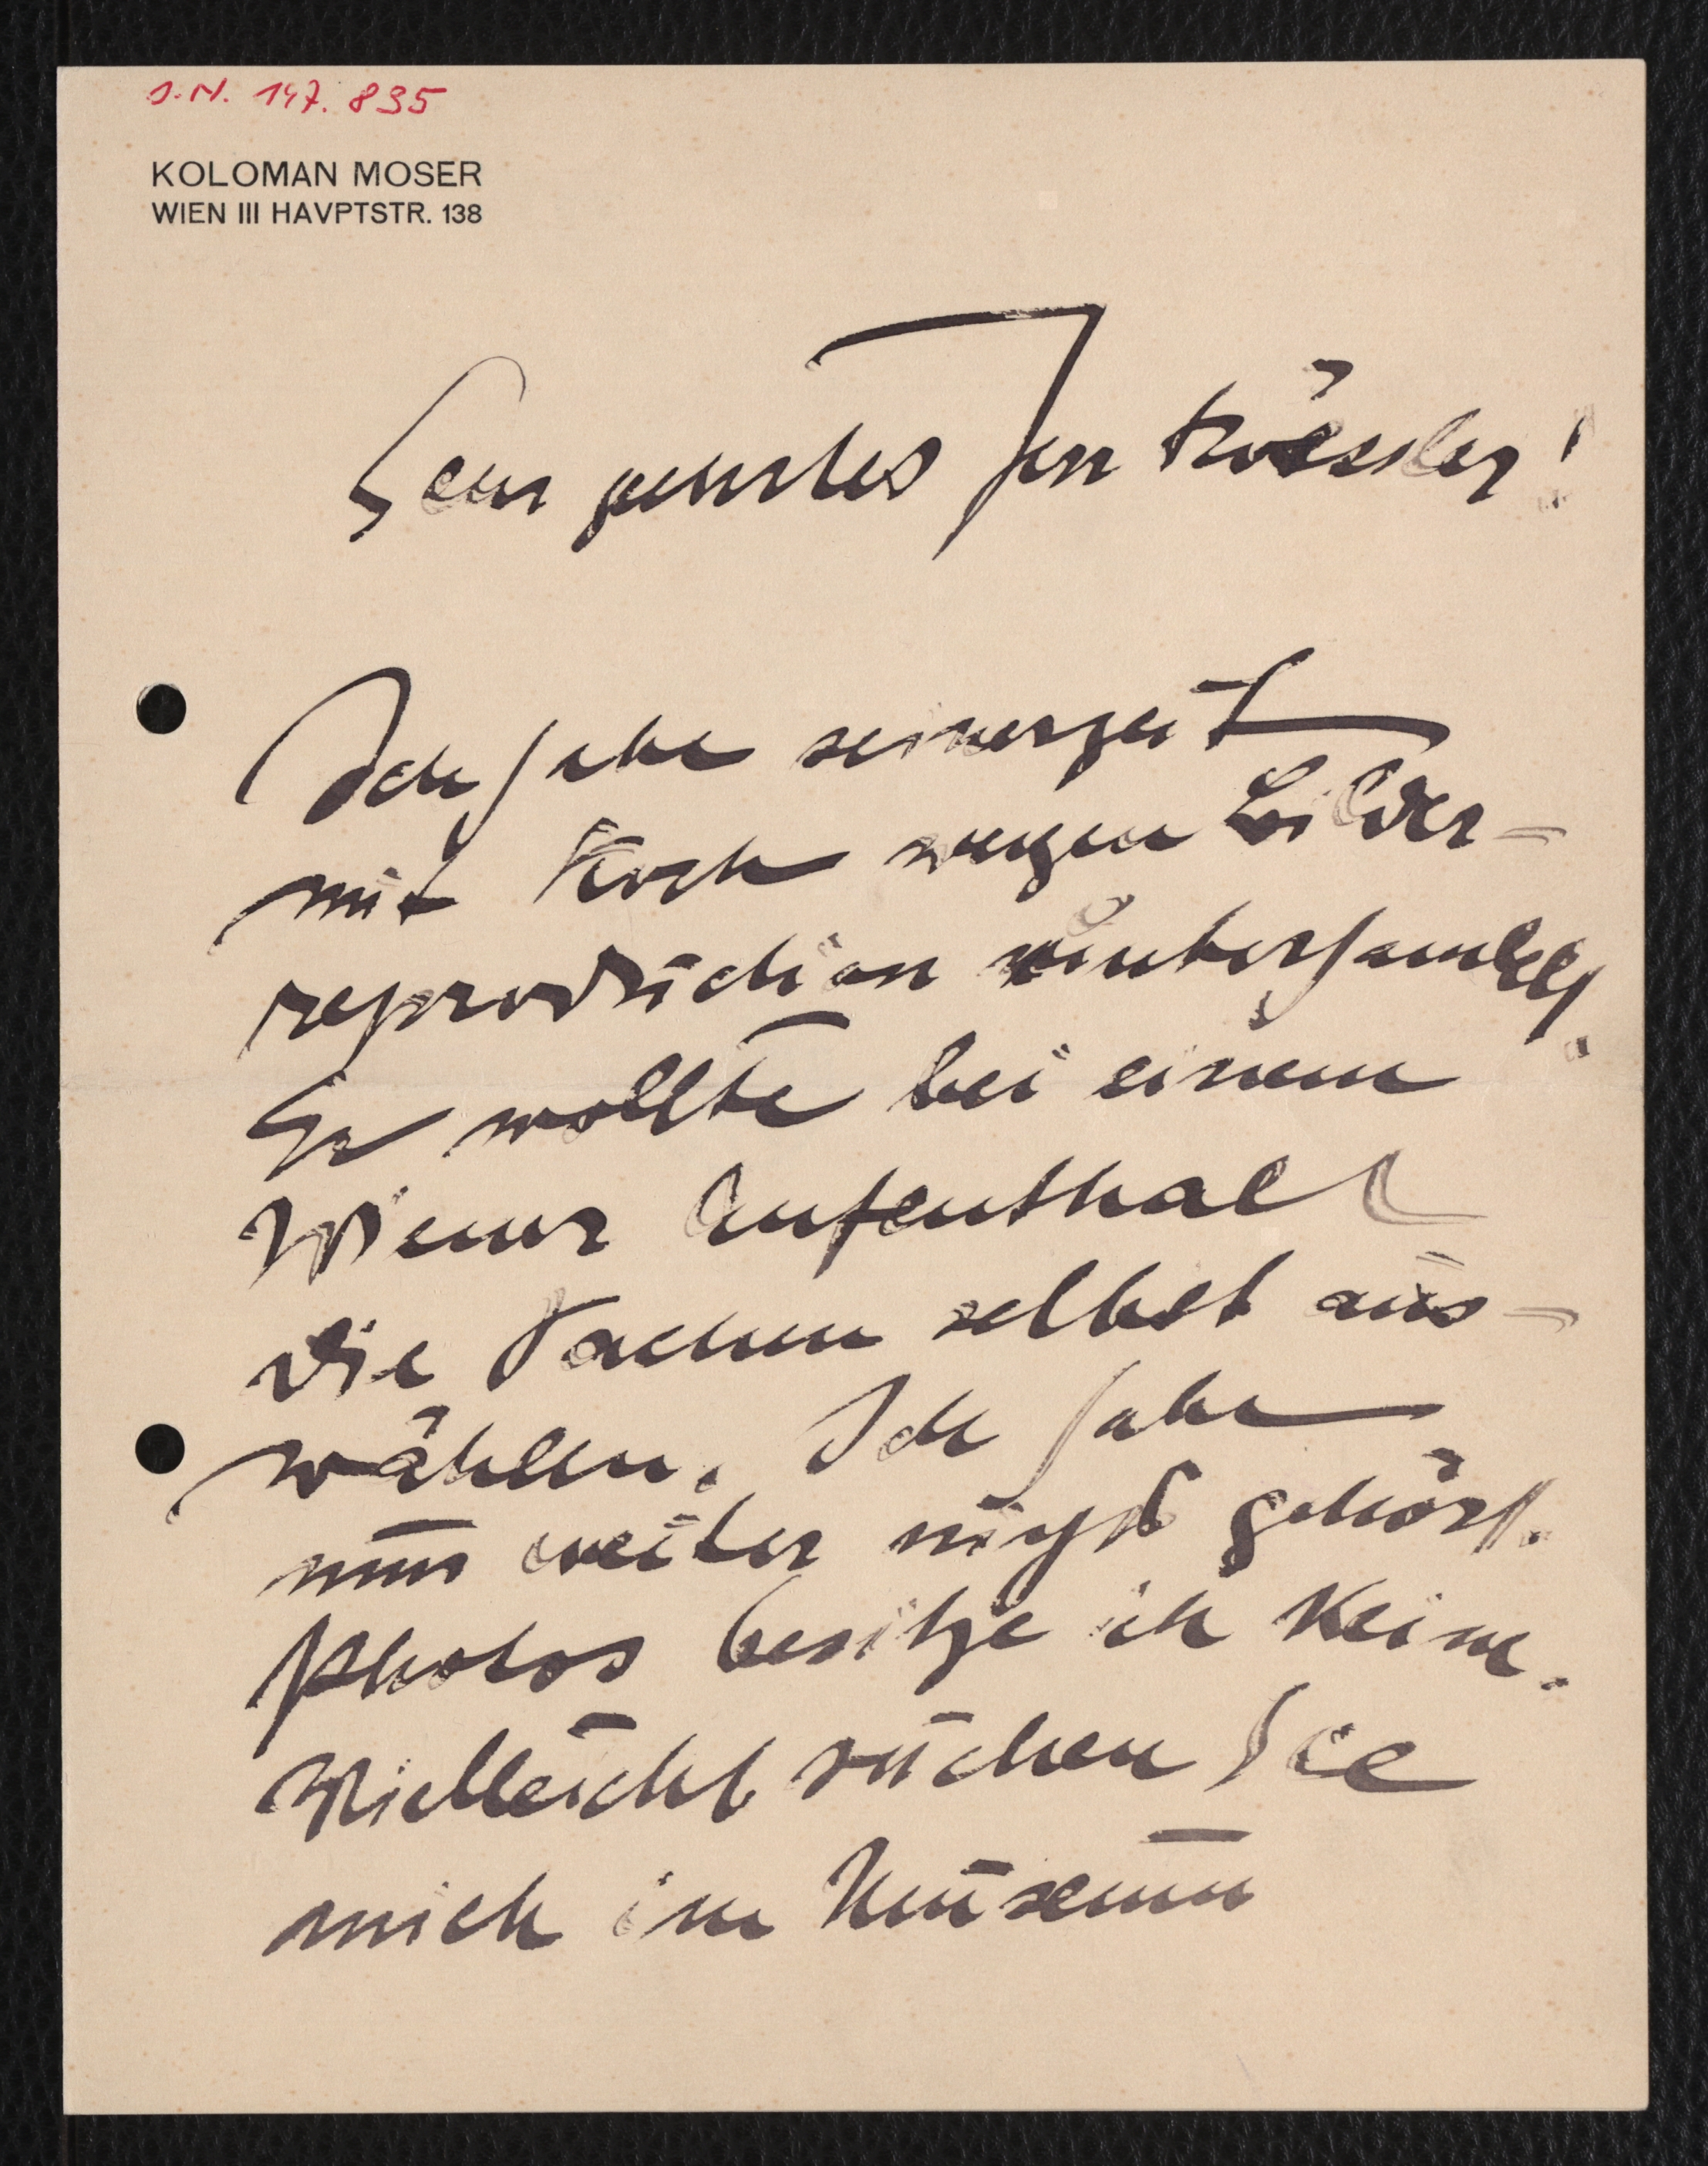 I.N. 147.835
KOLOMAN MOSER
WIEN III HAVPTSTR. 138
Sehr geehrter Herr Roessler!
Ich habe seinerzeit
mit Koch wegen Bilder-
reproduction unterhandelt.
Er wollte bei einem
Wiener Aufenthalt
die Sachen selbst aus-
wählen. Ich habe
nun weiter nichts gehört.
Photos besitze ich keine.
Vielleicht suchen Sie
mich im Museum